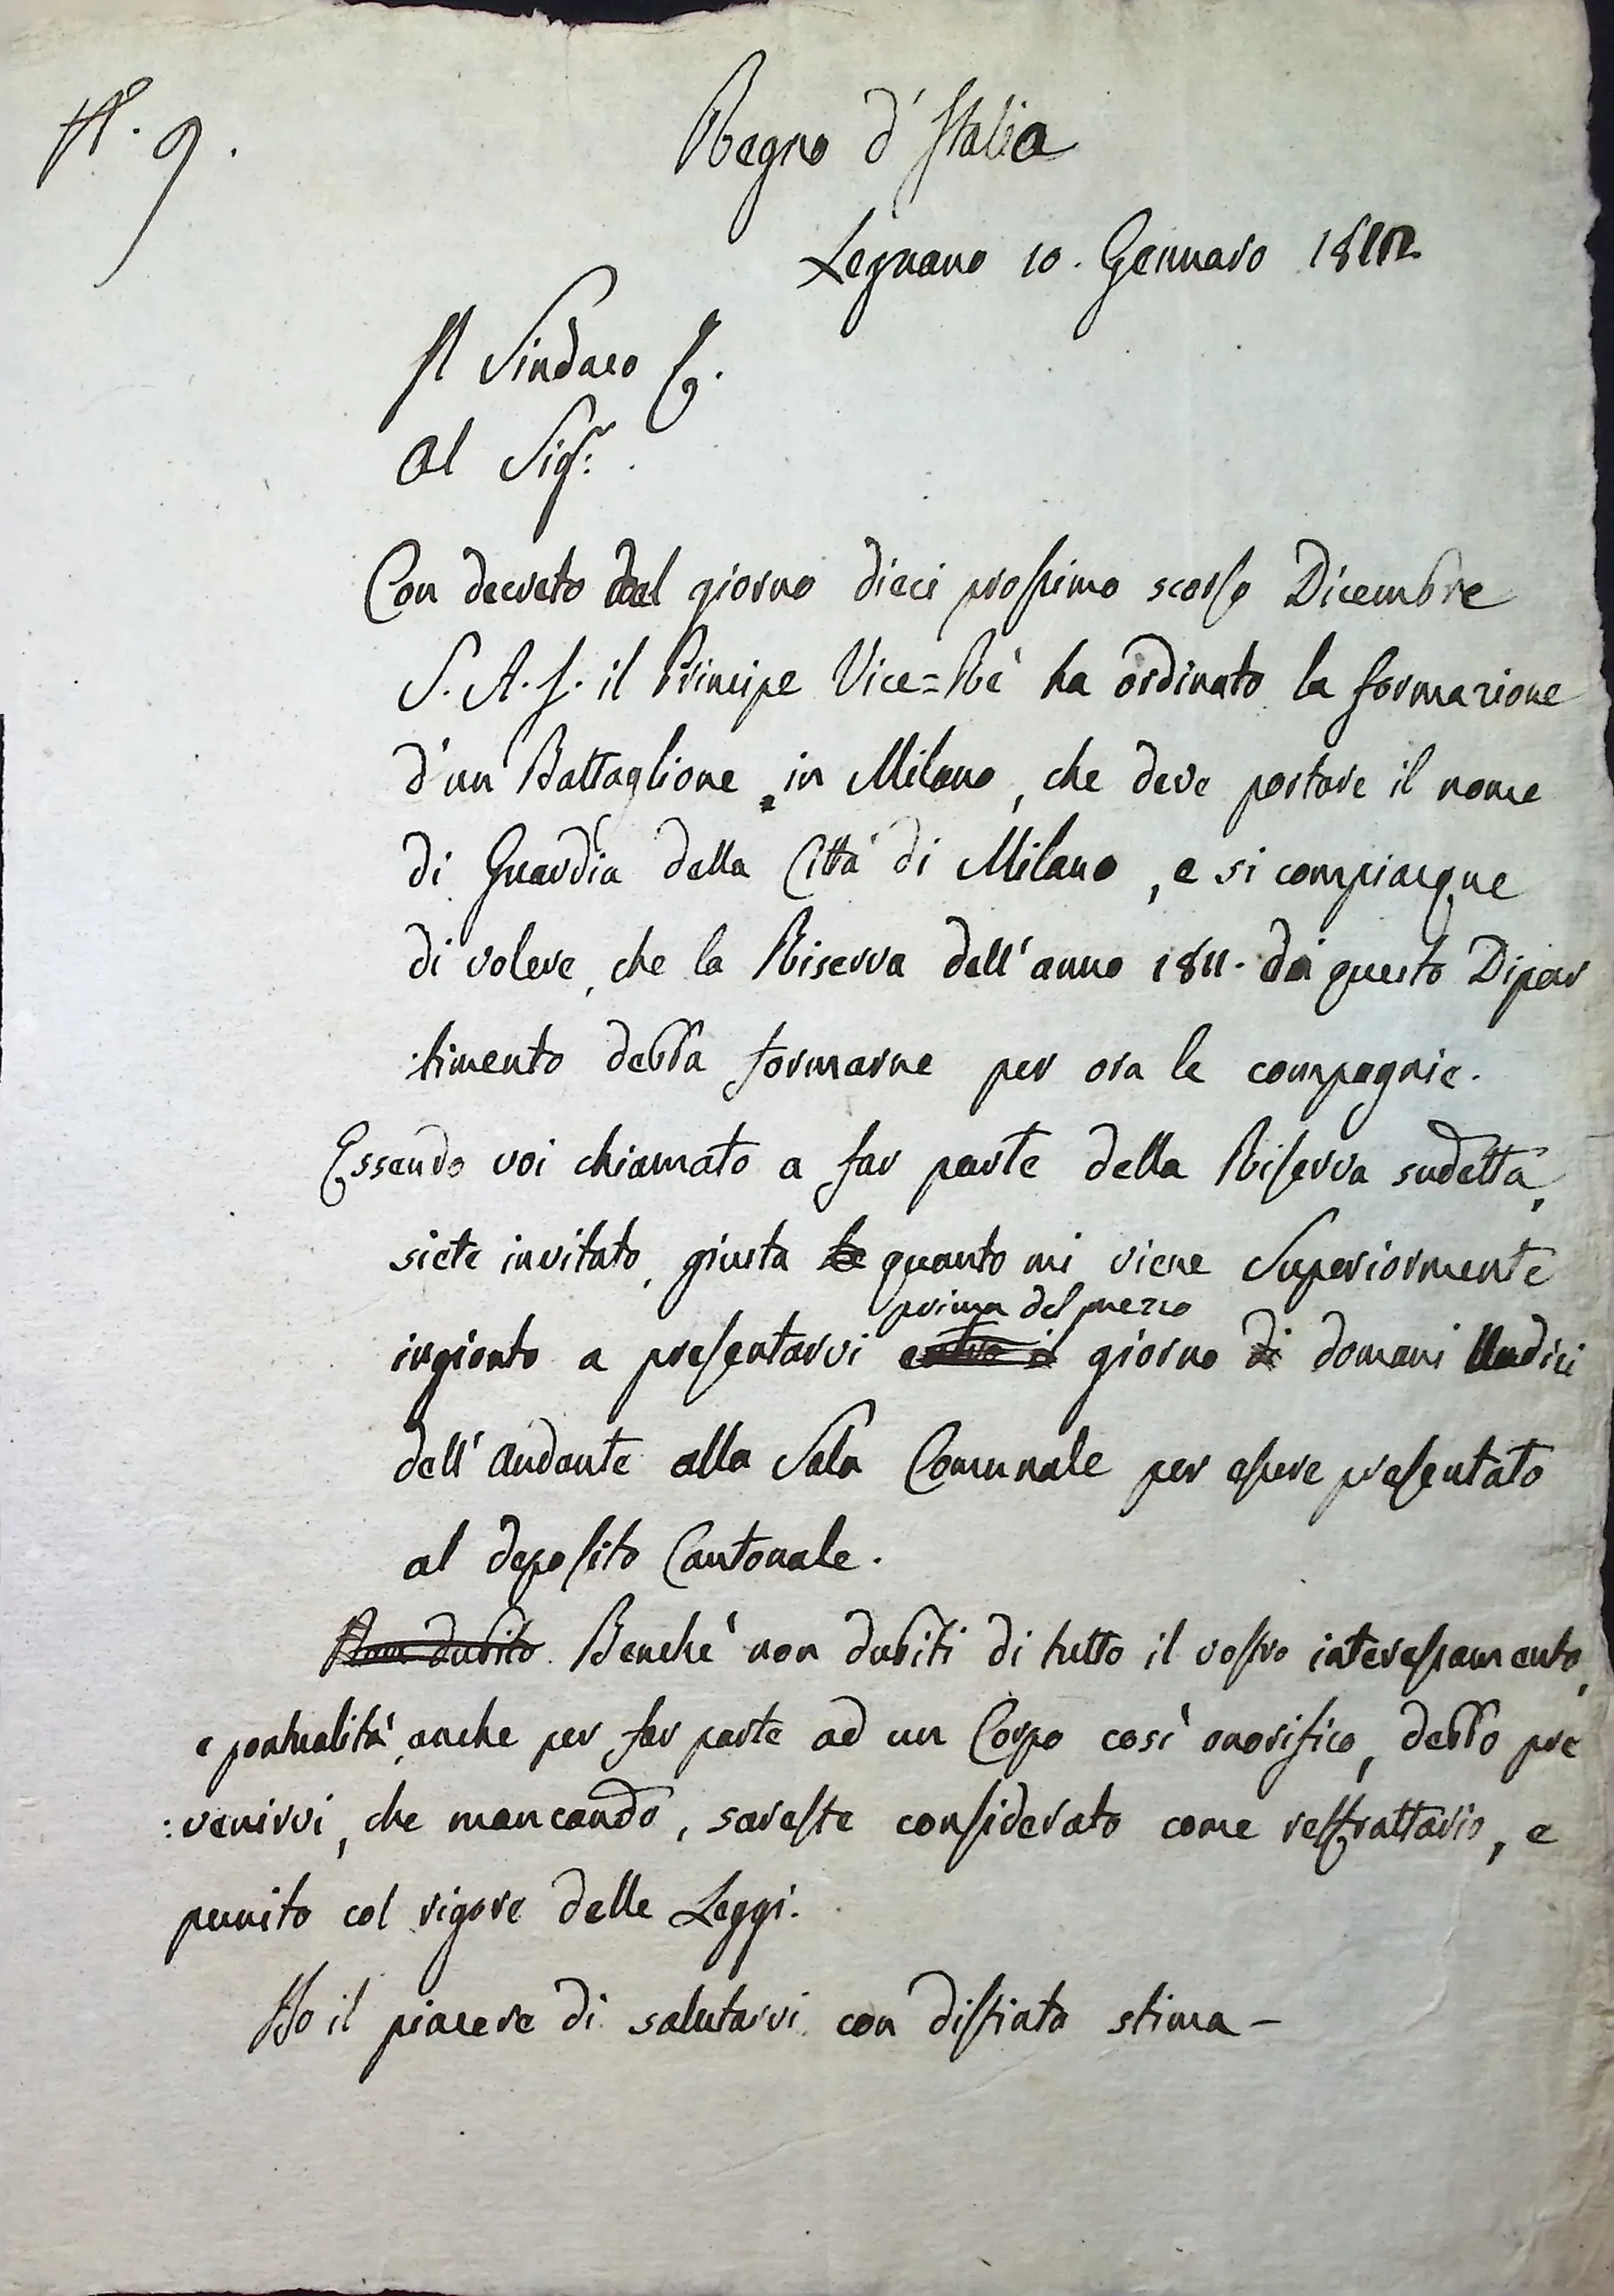 N. 9.
Regno d'Italia
Legnano 10. Gennaro 1812
Il Sindaco
Al Sigr:
Con decreto del giorno dieci prossimo scorso Dicembre
S. A. I. il Principe Vice=Rè ha ordinato la formazione
d'un Battaglione in Milano, che deve portare il nome
di Guardia della Città di Milano, e si compiacque
di volere, che la Riserva dell'anno 1811. di questo Dipar
:timento debba formarne per ora le compagnie.
Essendo voi chiamato a far parte della Riserva sudetta,
siete invitato, giusta quanto mi viene Superiormente
prima del mezzo
ingionto a presentarvi entro il giorno di domani Undici
dell'andante alla Sala Comunale per essere presentato
al deposito Cantonale.
Non dubito Benchè non dubiti di tutto il vostro interessamento,
e pontualità, anche per far parte ad un Corpo così onorifico, debbo pre
:venirvi, che mancando, sareste considerato come reffrattario, e
punito col rigore delle Leggi.
Ho il piacere di salutarvi con distinta stima-